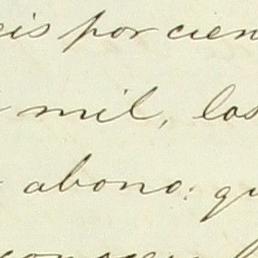 eis por cien
mil, los
abono: qu